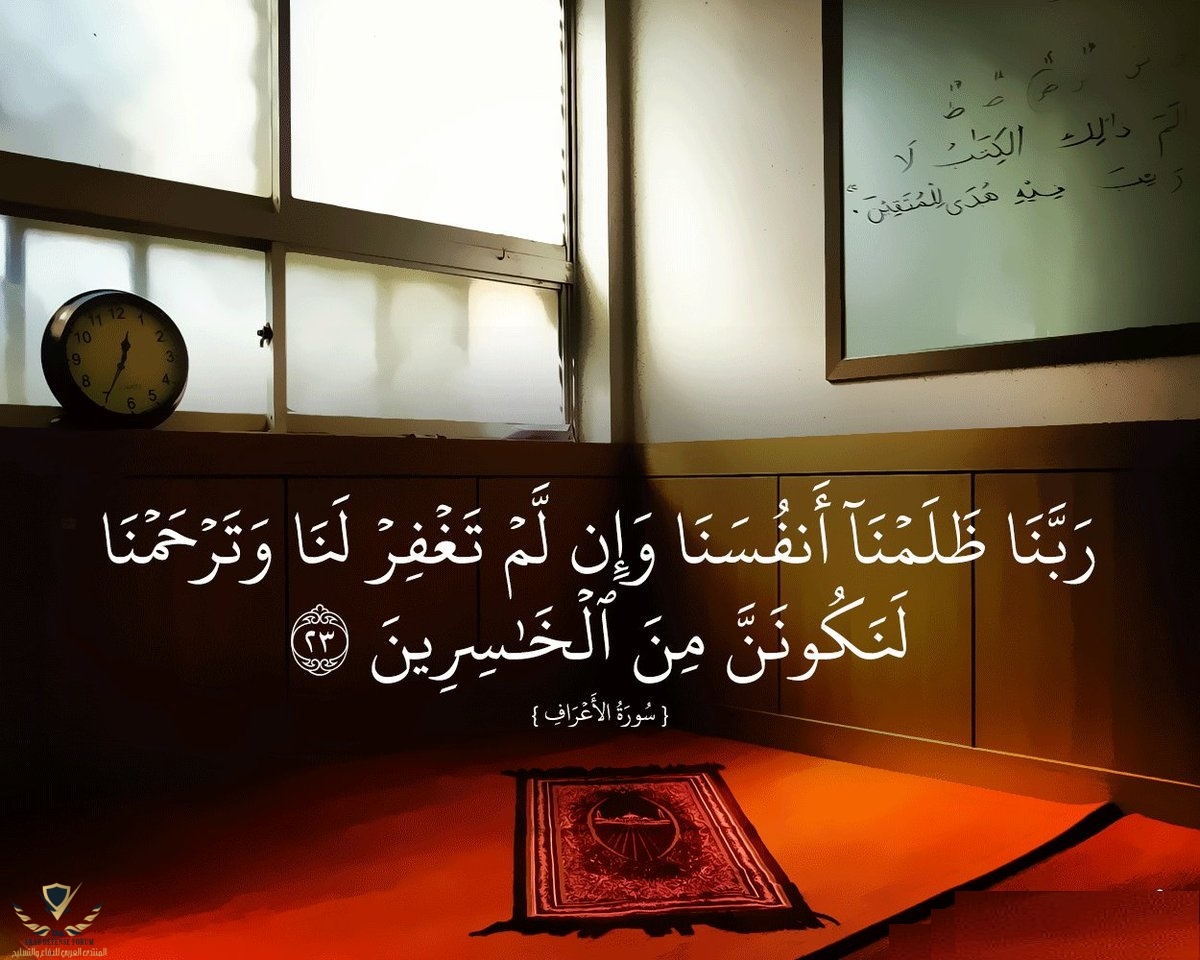 الٓمٓ ذالِكَ الكِتَابُ لَا
رَيْبَ فِيْهِ هُدًى لِلْمُتَّقِيْنَ.
12
11 1
10 2
9 3
8 4
7 5
6
رَبَّنَا ظَلَمْنَآ أَنفُسَنَا وَإِن لَّمْ تَغْفِرْ لَنَا وَتَرْحَمْنَا
لَنَكُونَنَّ مِنَ ٱلْخَـٰسِرِينَ ٢٣
{ سُورَةُ الأَعْرَافِ }
ARAB DEFENSE FORUM
المنتدى العربي للدفاع والتسليح